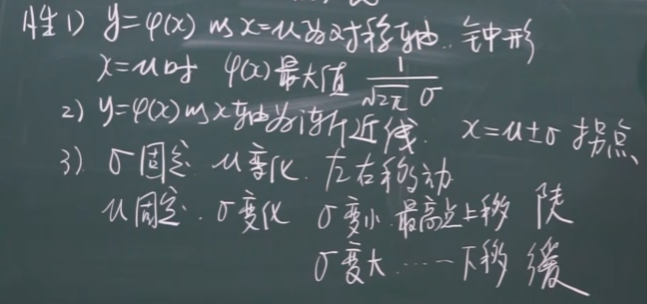 性1) y=φ(x) 以x=μ为对称轴.. 钟形
x=μ时 φ(x)最大值 1/(√2π σ)
2) y=φ(x)以x轴为渐近线. x=μ±σ 拐点
3) σ固定 μ变化. 左右移动
μ固定. σ变化 σ变小 最高点上移 陡
σ变大 ……下移 缓